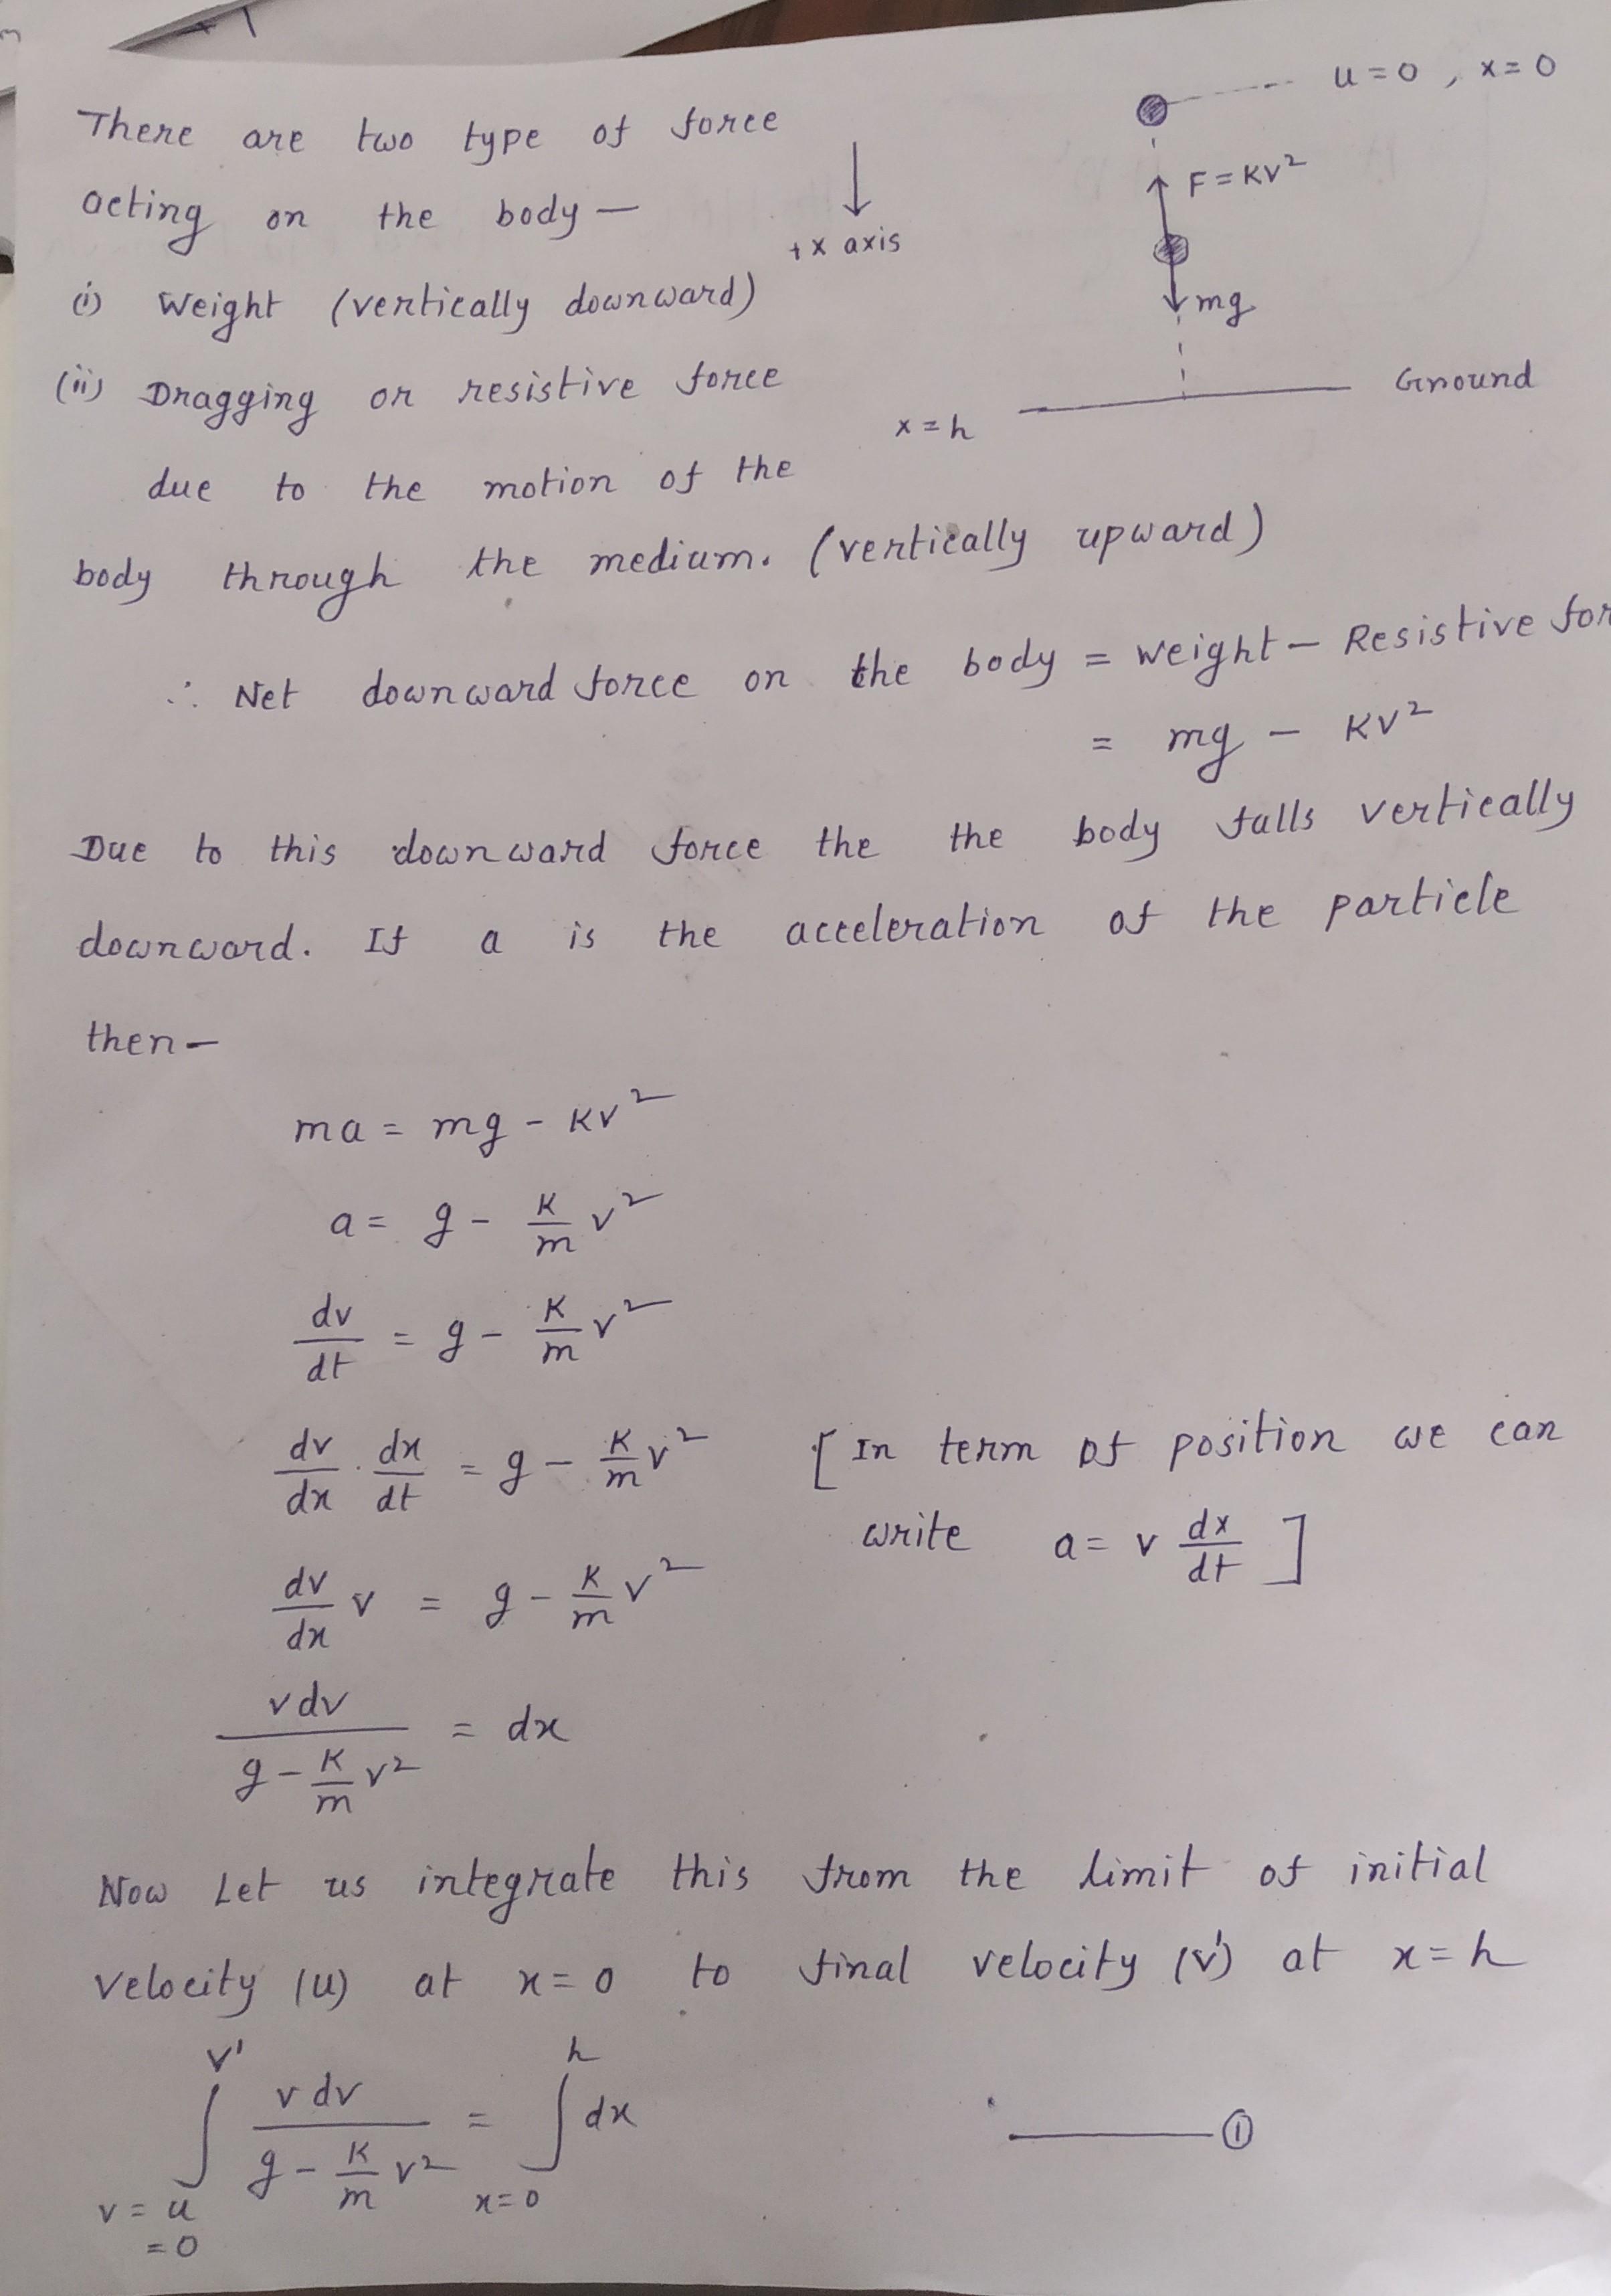 There are two type of force
acting on the body —
(i) Weight (vertically downward)
(ii) Dragging or resistive force
due to the motion of the
body through the medium. (vertically upward)
u = 0 , x = 0
F = KV²
+ x axis
mg
Ground
x = h
∴ Net downward force on the body = weight — Resistive for
= mg — KV²
Due to this downward force the the body falls vertically
downward. If a is the acceleration of the particle
then —
ma = mg - KV²
a = g - K/m v²
dv/dt = g - K/m v²
dv/dx . dx/dt = g - K/m v² [ In term of position we can
write a = v dx/dt ]
dv/dx v = g - K/m v²
v dv / (g - K/m v²) = dx
Now Let us integrate this from the limit of initial
velocity (u) at x = 0 to final velocity (v') at x = h
∫_{v = u = 0}^{v'} v dv / (g - K/m v²) = ∫_{x=0}^{h} dx —— ①